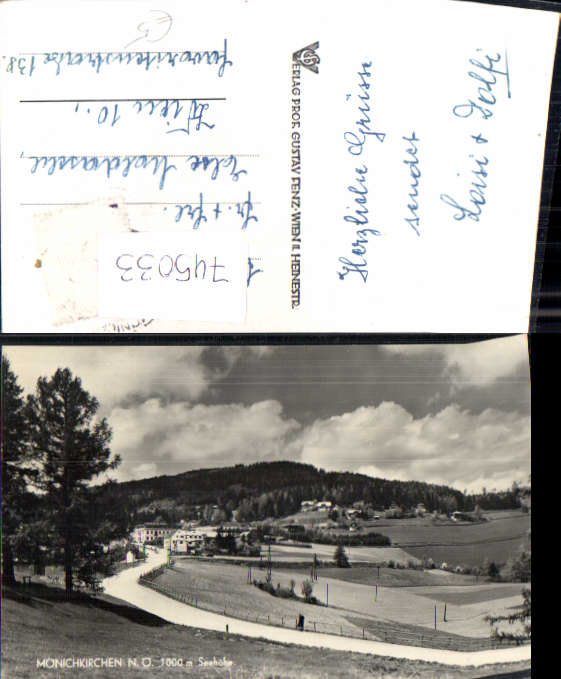 Herzliche Grüsse
sendet
Loisi + Dolfi
VERLAG PROF. GUSTAV FENZ·WIEN II. HEINESTR.
Fr. + Frl.
Wien 10.,
Favoritenstraße 138.
€ 5
745033
MÖNICHKIRCHEN N. Ö. 1000 m Seehöhe